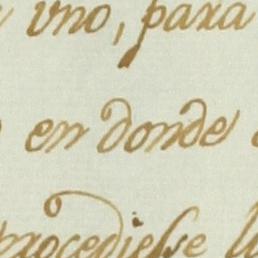 uno, para
en donde
procediesse